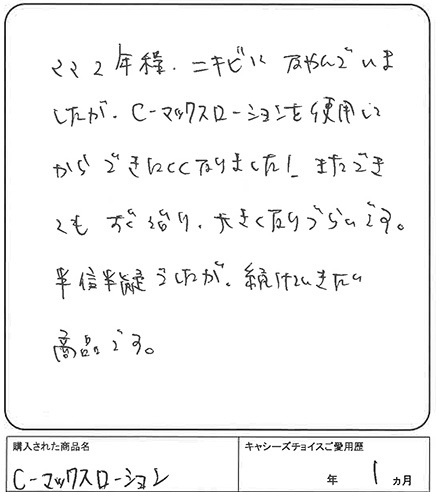 ここ2年程、ニキビになやんでいま
したが、C-マックスローションを使用して
からできにくくなりました! またでき
ても すぐ治り、大きくなりづらいです。
半信半疑でしたが、続けていきたい
商品です。
購入された商品名
C-マックスローション
キャシーズチョイスご愛用歴
年 1 ヵ月